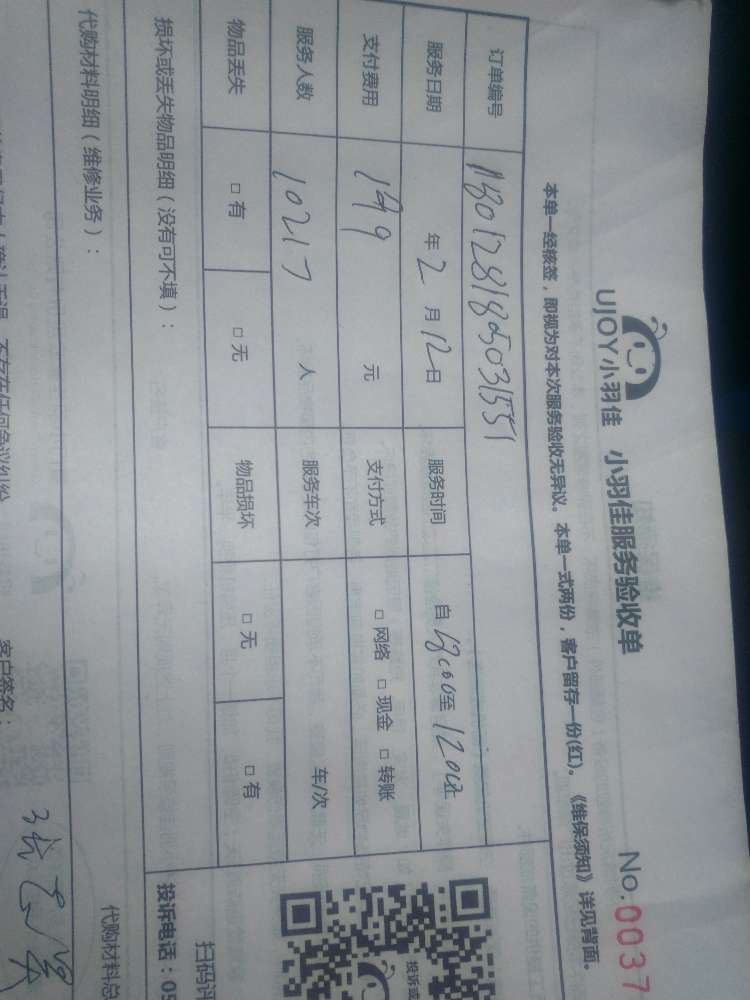 UJOY小羽佳 小羽佳服务验收单 No.0037
本单一经核签，即视为对本次服务验收无异议。本单一式两份，客户留存一份(红)。《维保须知》详见背面。
订单编号
服务日期 年 2 月 12 日 服务时间 自 至
支付费用 199 元 支付方式 □ 网络 □ 现金 □ 转账
服务人数 10217 人 服务车次 车/次
物品丢失 □ 有 □ 无 物品损坏 □ 无 □ 有
损坏或丢失物品明细（没有可不填）：
代购材料明细（维修业务）： 代购材料总
扫码评
投诉电话：05
投诉或
不存在任何争议纠纷
客户签名：